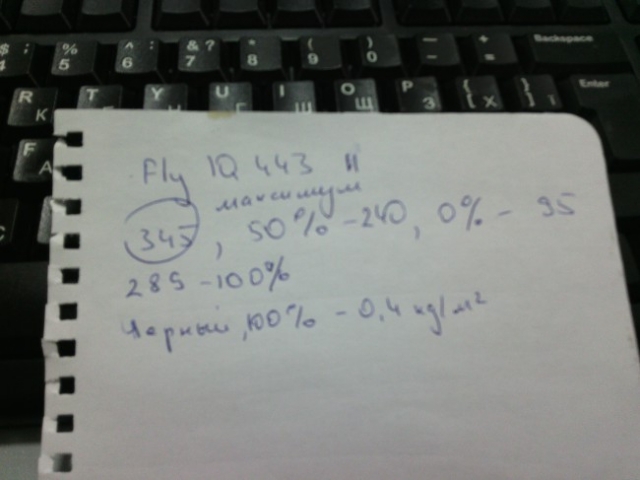 $ ; % : ^ : & ? * ( ) — +
4 5 6 7 8 9 0 - = Backspace
R К T Y U Г I Ш O Щ P З { [ Х } ] Enter
F А
Fly IQ 443
максимум
345, 50% - 240, 0% - 95
289 - 100%
Черный, 100% - 0,4 кд/м²